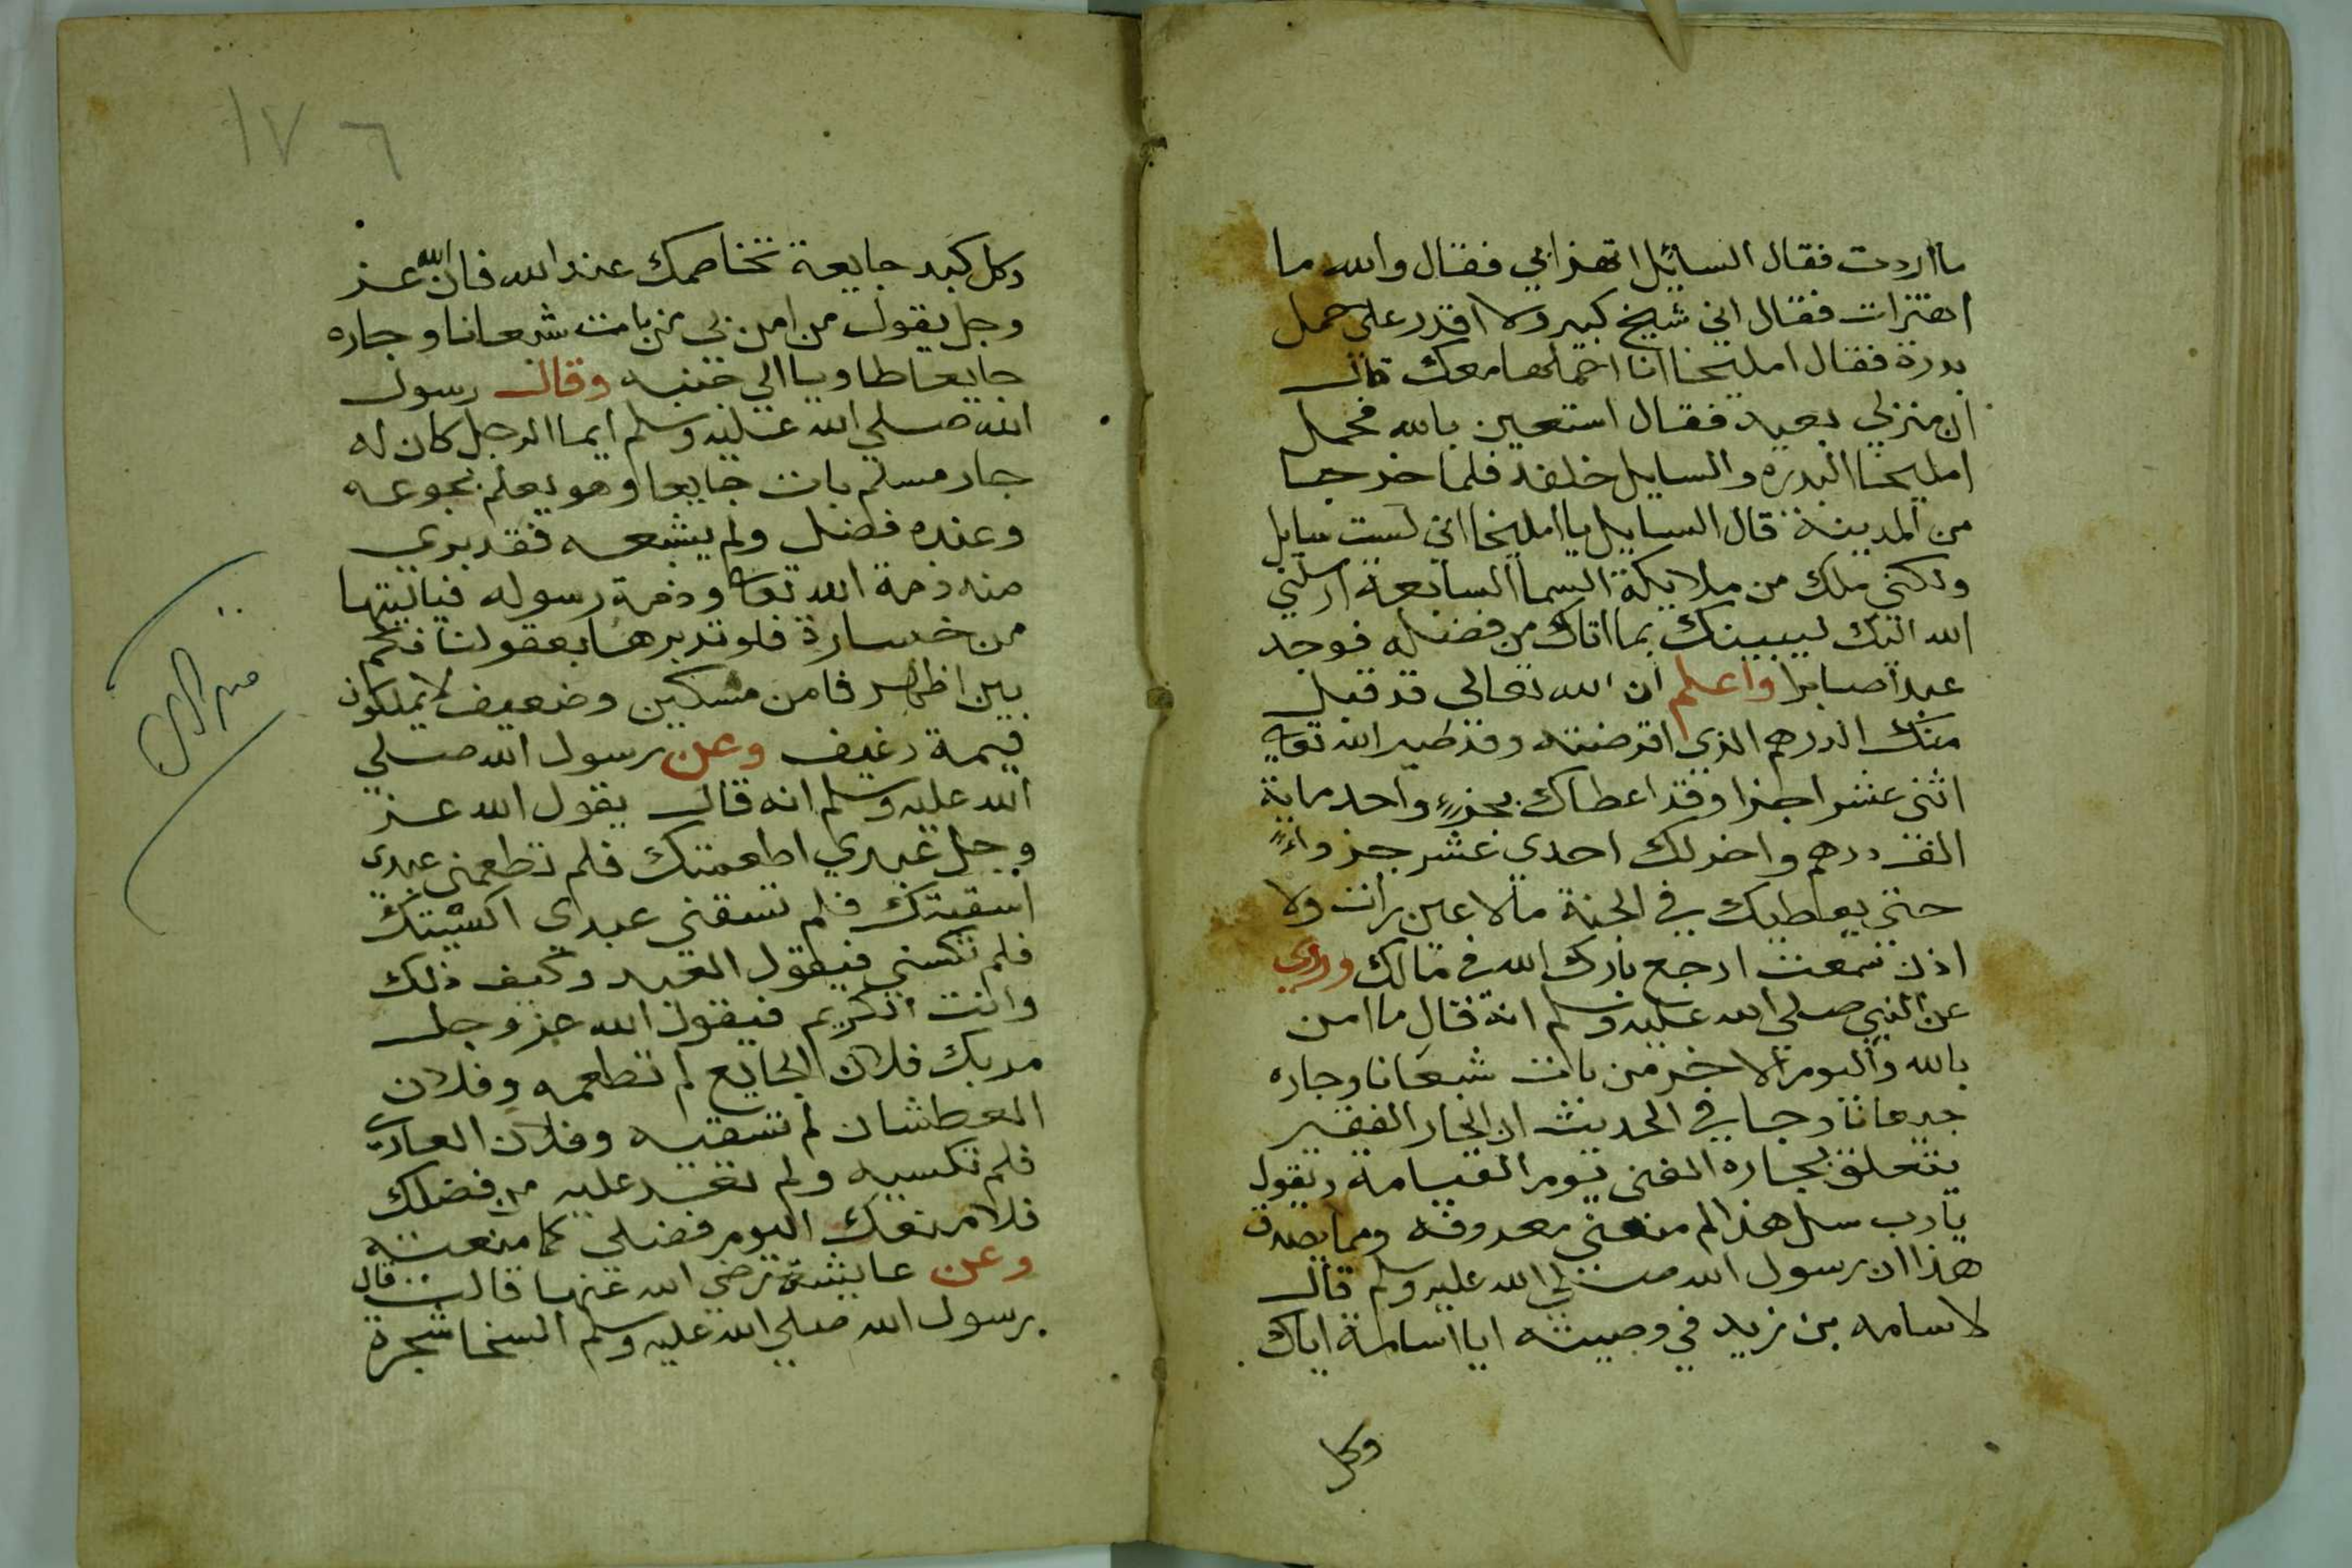 ما اردت فقال السائل اتهزابي فقال والله ما
اهتزات فقال اني شيخ كبير ولا اقدر على حمل
بدرة فقال امليخا انا احملها معك قال
ان منزلي بعيد فقال استعين بالله فحمل
امليخا البدره والسايل خلفه فلما خرجا
من المدينة قال السايل يا امليخا اني لست سايل
ولكني ملك من ملايكة السما السابعة ارسلني
الله اليك ليبينك بما اتاك من فضله فوجد
عبدا صابرا واعلم ان الله تعالى قد قبل
منك الدرهم الذي اقرضته وقد صير الله تعالى
اثنى عشر اجزا وقد اعطاك بجزء واحد ماية
الف درهم واخر لك احدي عشر جزواء
حتى يعطيك في الجنة مالا عين رات ولا
اذن سمعت ارجع بارك الله في مالك وروي
عن النبي صلي الله عليه وسلم انه قال ما امن
بالله واليوم الاخر من بات شبعانا وجاره
جيعانا وجا في الحديث ان الجار الفقير
يتعلق بجاره الغني يوم القيامة ويقول
يا رب سل هذا لم منعني معروفه ومما يصدق
هذا ان رسول الله صلي الله عليه وسلم قال
لاسامه بن زيد في وصيته ايا اسامة اياك
وكل
١٧٦
وكل كبد جايعة تخاصمك عند الله فان الله عز
وجل يقول من امن بي من بات شبعانا وجاره
جايعا طاويا الي جنبه وقال رسول
الله صلي الله عليه وسلم ايما الرجل كان له
جار مسلم بات جايعا وهو يعلم بجوعه
وعنده فضل ولم يشبعه فقد بري
منه ذمة الله تعالى وذمة رسوله فياليتها
من خسارة فلو تدبرها بعقولنا فكم
بين اظهر قا من مسكين وضعيف لا يملكون
قيمة رغيف وعن رسول الله صلي
الله عليه وسلم انه قال يقول الله عز
وجل عبدي اطعمتك فلم تطعمني عبدي
اسقيتك فلم تسقني عبدي اكسيتك
فلم تكسني فيقول العبد وكيف ذلك
وانت الكريم فيقول الله عز وجل
مر بك فلان الجايع لم تطعمه وفلان
العطشان لم تسقيه وفلان العاري
فلم تكسيه ولم تعد عليه من فضلك
فلامنعك اليوم فضلي كما منعته
وعن عايشة رضي الله عنها قالت قال
رسول الله صلي الله عليه وسلم السخا شجرة